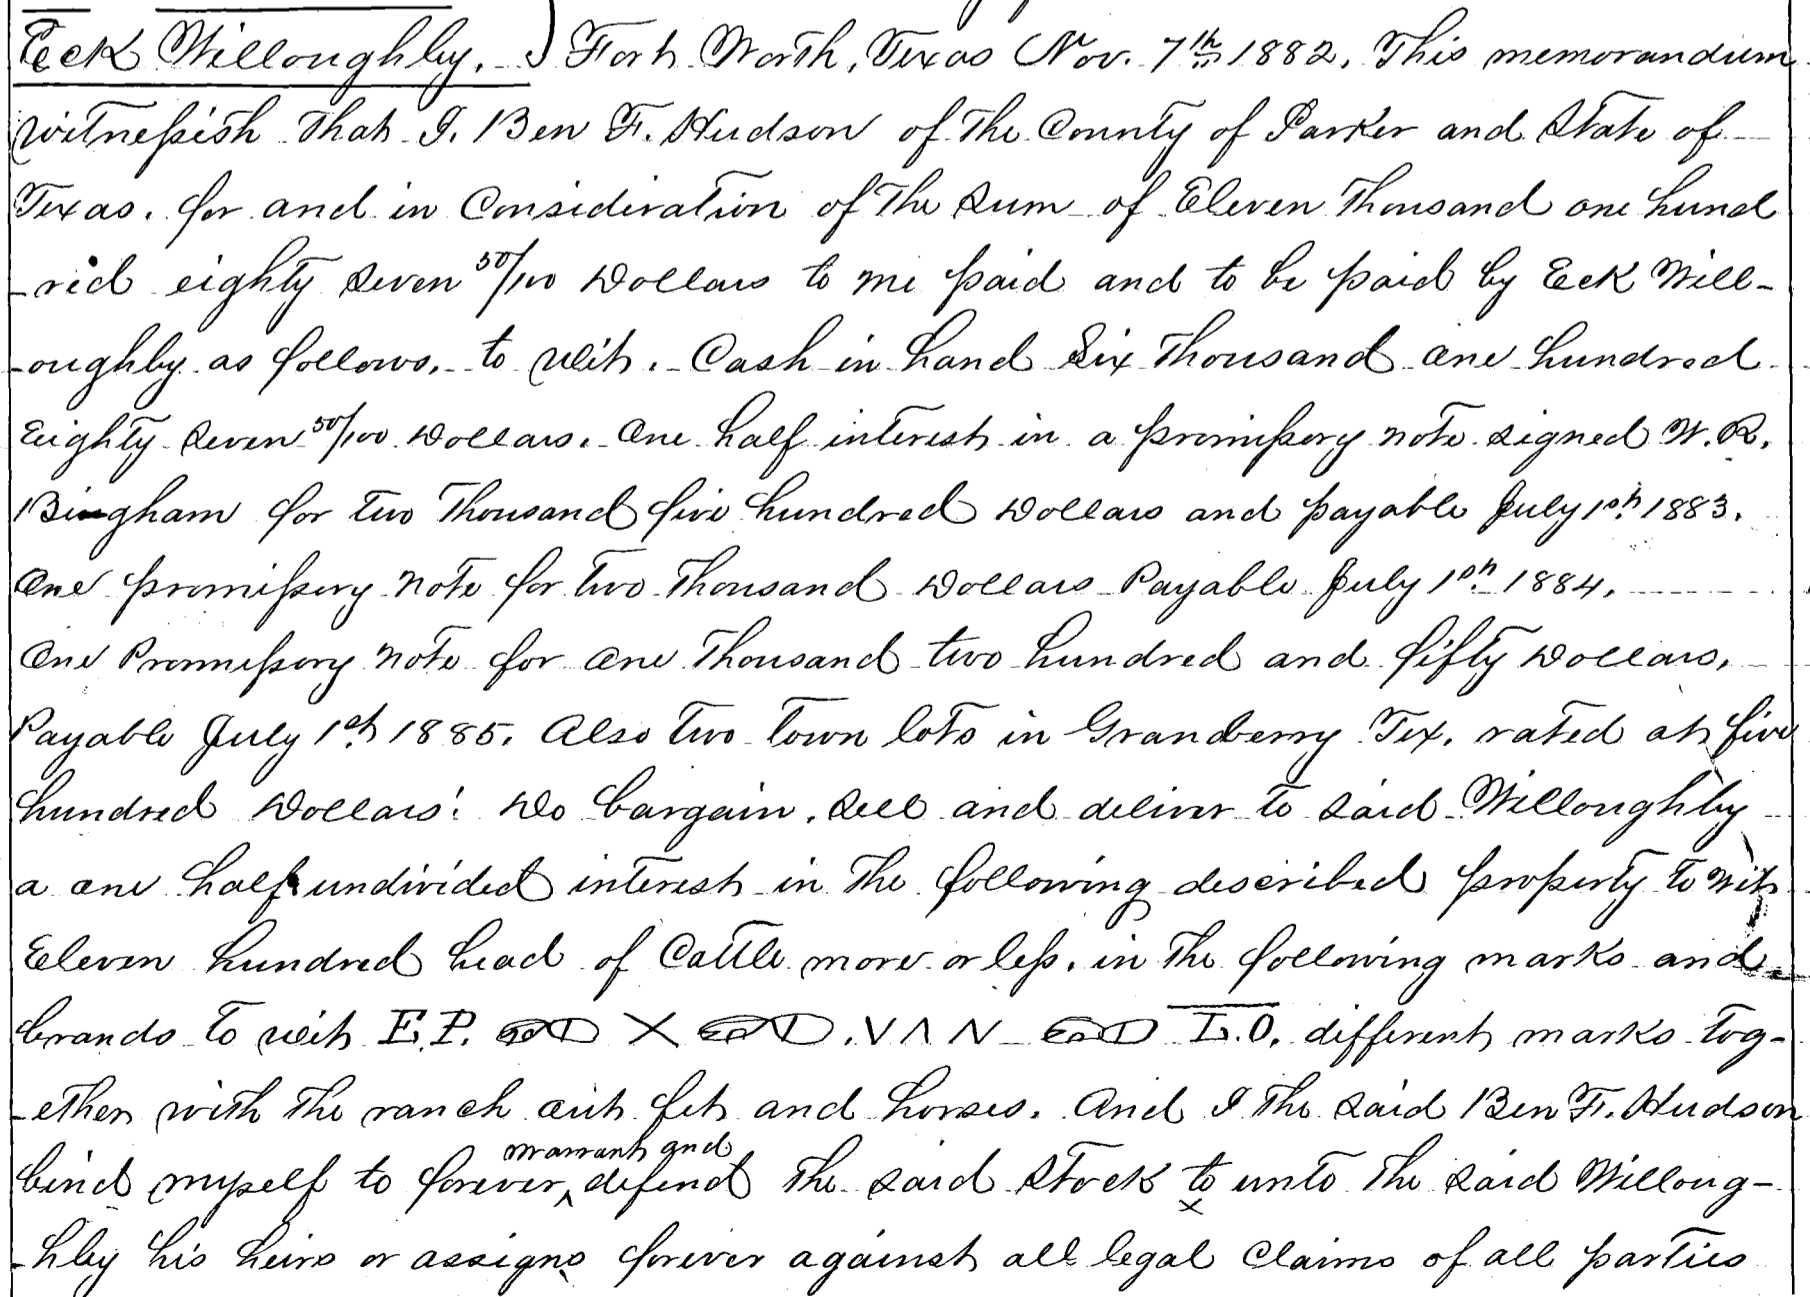 Eck Willoughby. } Fort Worth, Texas Nov. 7th 1882. This memorandum
witnessith That I. Ben F. Hudson of the County of Parker and State of
Texas. for and in Consideration of the Sum of Eleven Thousand one hund
-red eighty Seven 50/100 Dollars to me paid and to be paid by Eck Will-
-oughby as follows. to wit. Cash in hand Six Thousand one hundred
Eighty Seven 50/100 Dollars. One half interest in a promissory note signed W. R.
Bingham for two Thousand five hundred Dollars and payable July 1st 1883.
One promissory note for two Thousand Dollars Payable July 1st 1884.
One Promissory note for one Thousand two hundred and fifty Dollars,
Payable July 1st 1885. Also two town lots in Granberry Tex. rated at five
hundred Dollars: Do bargain, sell and deliver to said Willoughby
a one half undivided interest in the following described property to wit
Eleven hundred head of Cattle more or less, in the following marks and
brands to wit E.P. X V Λ N L.O. different marks tog-
-ether with the ranch out fit and horses. And I the said Ben F. Hudson
warrant and
bind myself to forever ^ defend the said Stock to unto the said Willoug-
-hby his heirs or assigns forever against all legal Claims of all parties